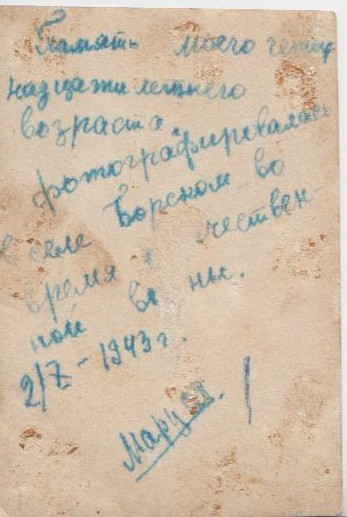 Память моего четыр
надцати летнего
возраста
фотографировалась
в селе Борском во
время чествен-
ной во ны.
2/X - 1943 г.
Маруся.